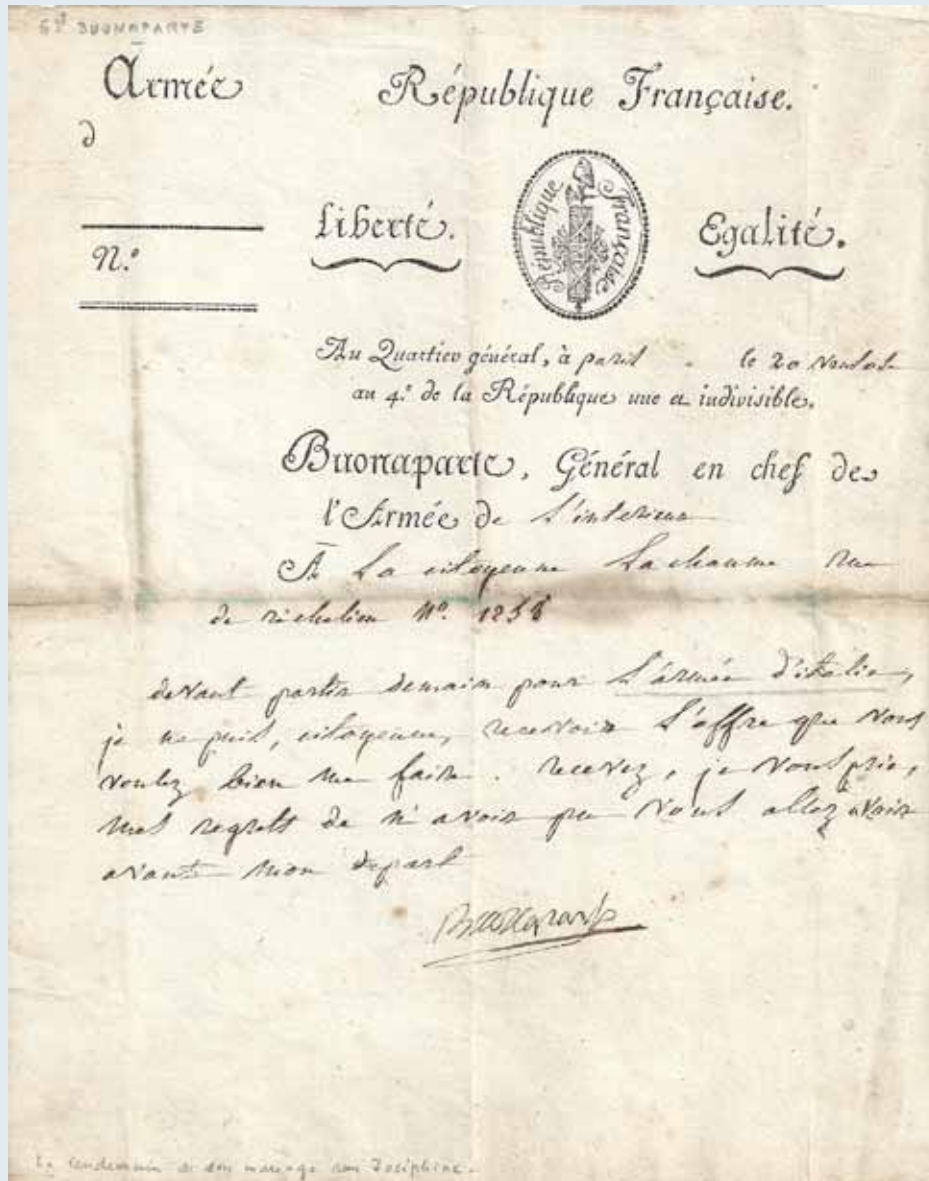 Gal BUONAPARTE
Armée
d
République Française.
Liberté.
République Française
Egalité.
N.º
Au Quartier général, à paris le 20 Ventose
an 4.e de la République une et indivisible.
Buonaparte, Général en chef de
l'Armée de L'interieur
A La citoyenne Lachaume rue
de richelieu Nº.
devant partir demain pour L'armée d'italie,
je ne puis, citoyenne, recevoir L'offre que vous
voulez bien me faire. recevez, je vous prie,
mes regrets de n'avoir pu vous allez voir
avant mon depart
Buonaparte
Le lendemain de son mariage avec Joséphine.